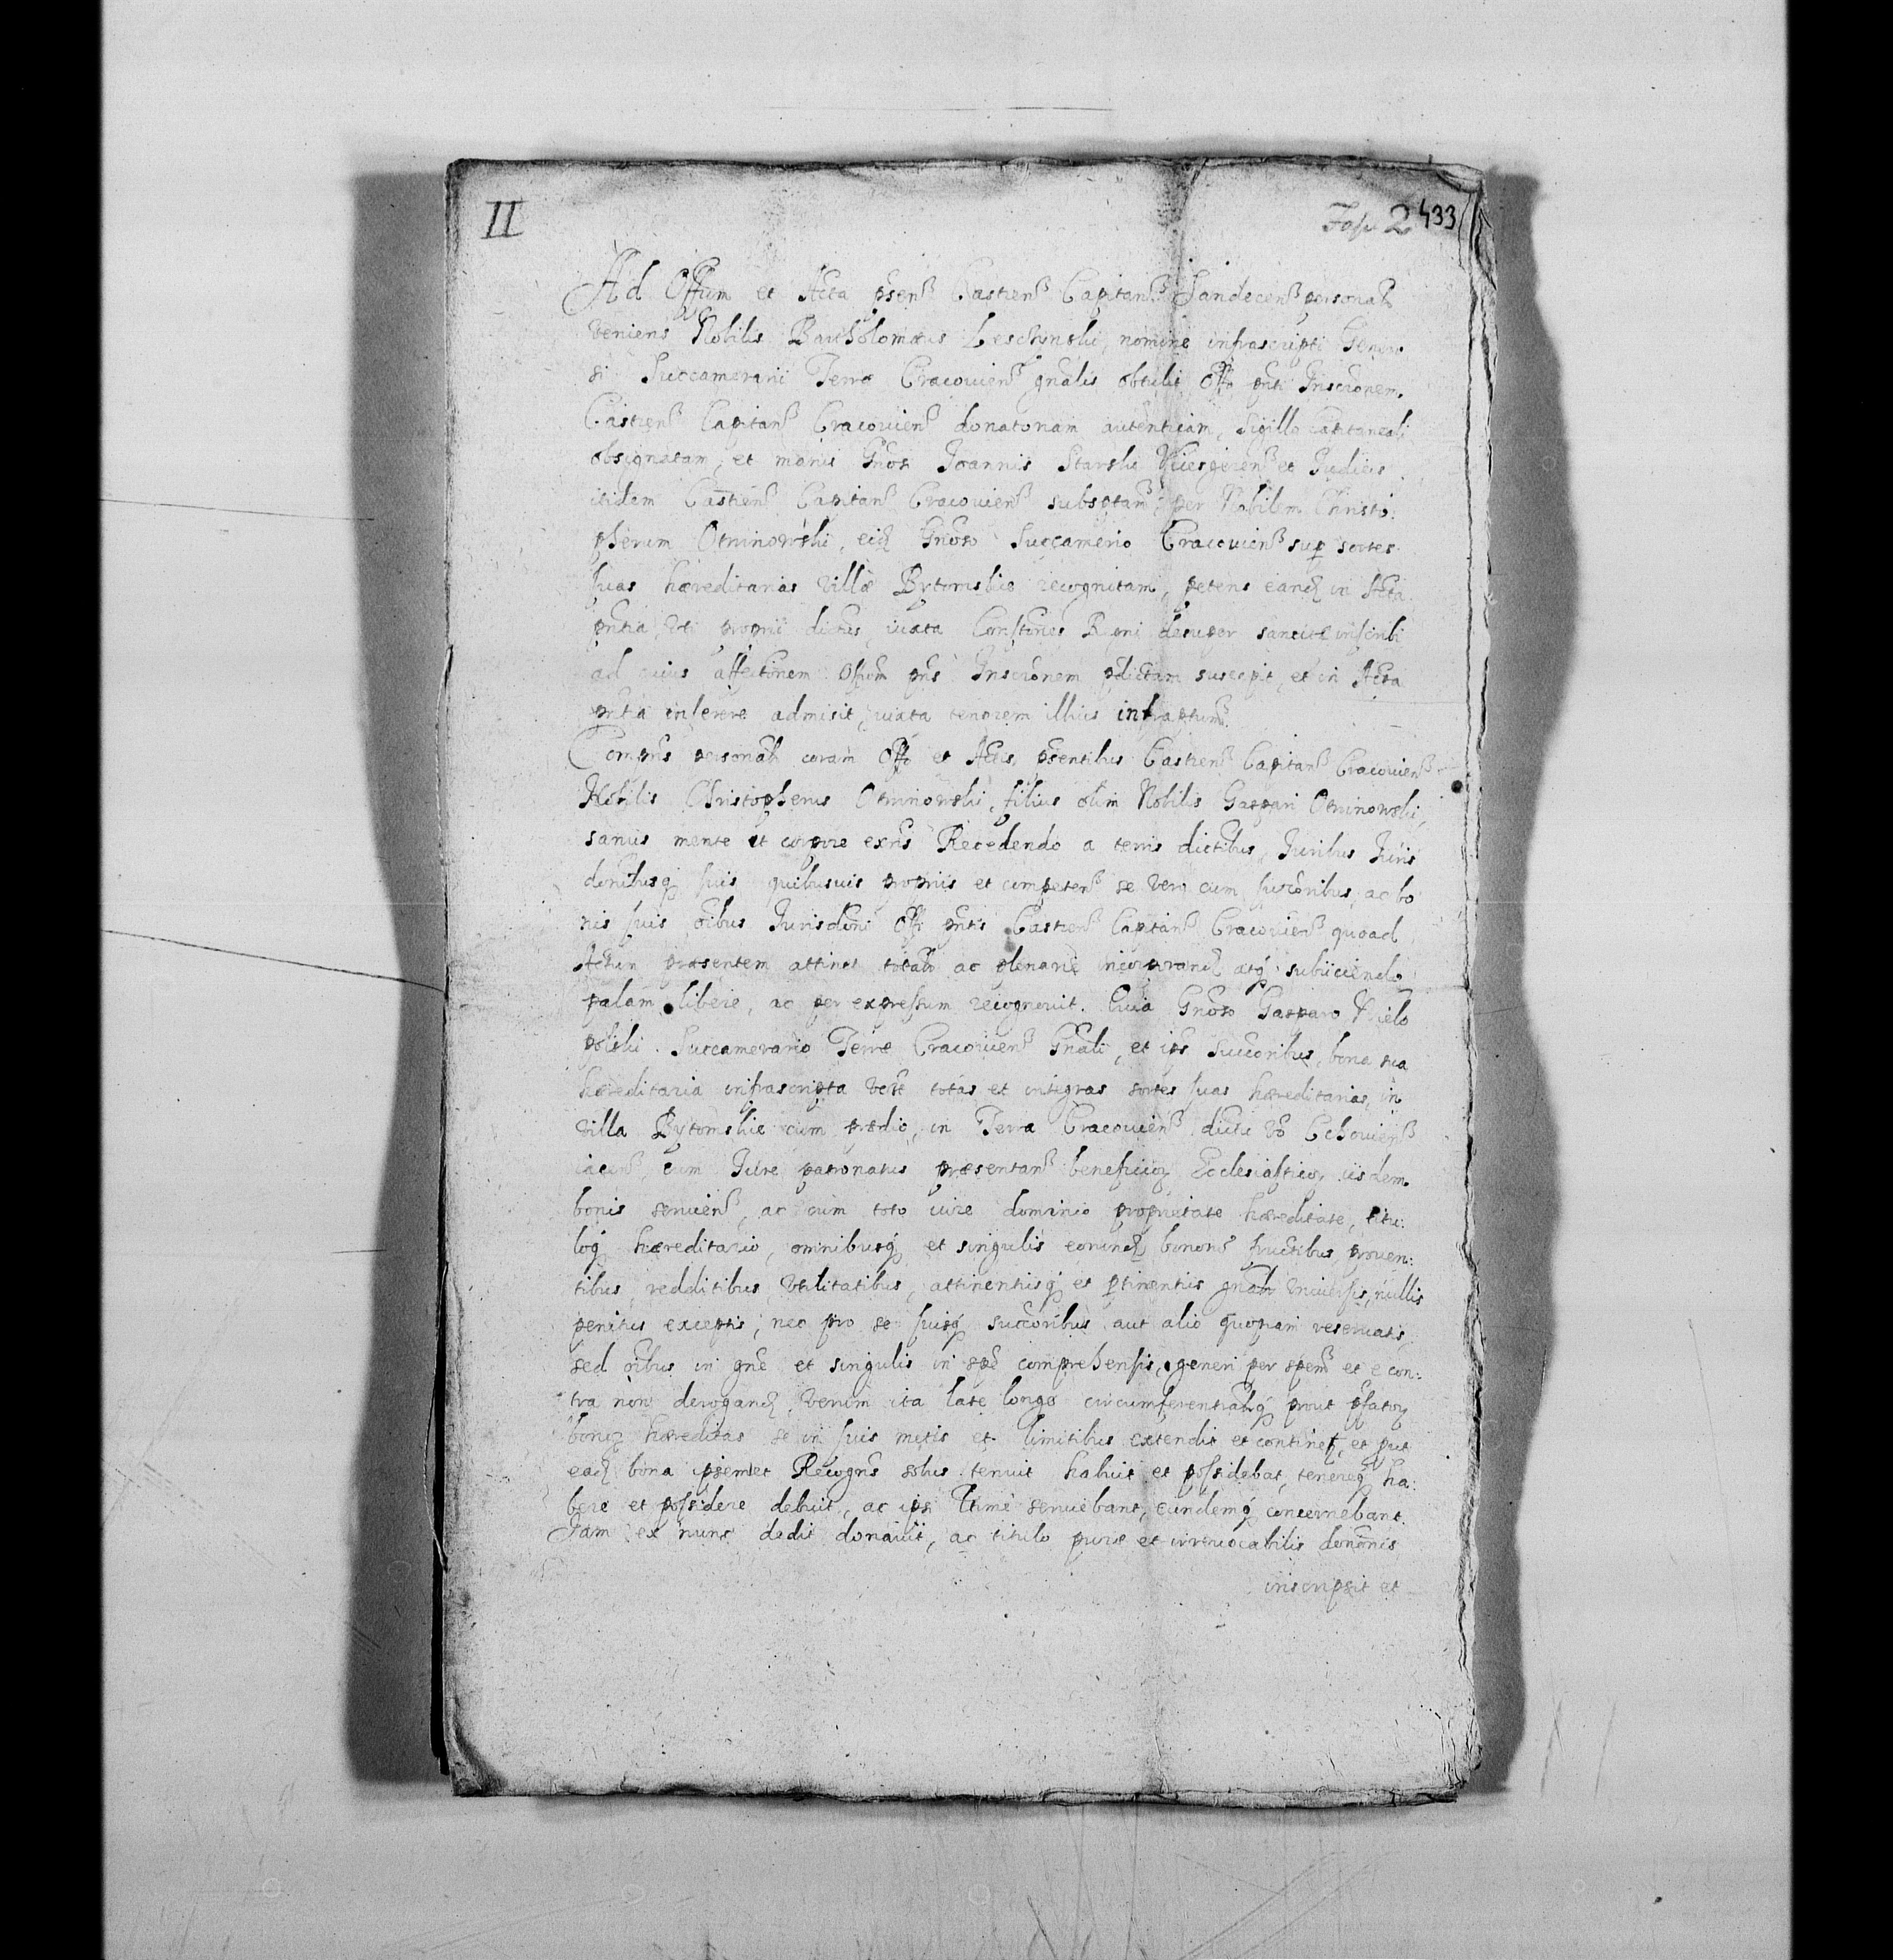 II
Fasc 2 433
Ad Offum et Acta psen Castren Capitan Sandecen personalr
veniens Nobilis Bartholomæus Leschynski nomine infrascripti Genero
si Succamerarii Terræ Cracovien gnalis obtulit Offo pnti Inscronem
Castren Capitan Cracovien donatoriam autenticam, sigillo capitaneali
obsignatam, et manu Gnosi Joannis Starski Vicesgeren et Judicis
itidem Castren Capitan Cracovien subsptam, per Nobilem Christo:
pherum Otwinowski, eidq Gnoso Succamerio Cracovien sup sortes
suas hæreditarias villæ Bytomskie recognitam, petens eandq in Acta
pntia, iuxta Constnes Regni desuper sancitas inscribi
ad cuius affectionem Offium pns Inscronem pdictam suscepit, et in Acta
pntia inserere admisit, iuxta tenorem illius infrasptum.
Comprns personalr coram Offo et Actis psentibus Castren Capitan Cracovien
Nobilis Christopherus Otwinowski, filius olim Nobilis Gaspari Otwinowski,
sanus mente et corpore exns Recedendo a terris dictibus, Juribus Juris
donibusq suis quibusuis propriis et competen se vero cum succoribus, ac bo
nis suis oibus Jurisdoni Offi pntis Castren Capitan Cracovien quoad
Actum præsentem attinet totalr ac plenarie incorporandq atq subiiciendo
palam libere, ac per expressum recognovit. Quia Gnoso Gasparo Wielo
polski Succamerario Terræ Cracovien Gnali, et ips succoribus, bona sua
hæreditaria infrascripta vert totas et integras sortes suas hæreditarias, in
villa Bytomskie cum prædio, in Terra Cracovien dictu vo Cchovien
iacen, cum Jure patronatus præsentan beneficior Ecclesiasticor iisdem
bonis servien, ac cum toto iure dominio proprietate hæreditate, titu:
loq hæreditario, omnibusq et singulis eorundq bonorum fructibus, proven:
tibus, redditibus, utilitatibus, attinentiisq et ptinentiis gnalr universis, nullis
penitus exceptis, nec pro se suisq succoribus aut alio quopiam reservatis,
sed oibus in gne et singulis in spe comprehensis, generi per spem et e con:
tra non derogandq verum ita late longe circumferentialrq prout pfator
bonor hæreditas se in suis metis et limitibus extendit et continet, et put
eadq bona ipsemet Recogns solus tenuit habuit et possidebat, tenereq ha:
bere et possidere debuit, ac ips ltime serviebant, eundemq concernebant.
Jam ex nunc dedit donavit, ac titulo puræ et irrevocabilis dononis
inscripsit et